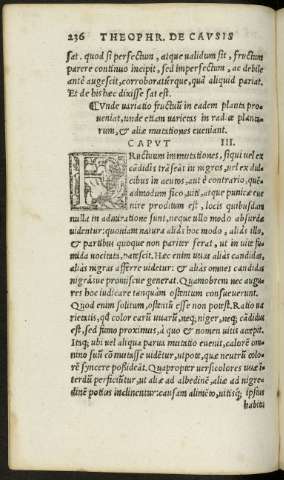 236 THEOPHR. DE CAVSIS
sat. quod si perfectum, atque validum sit, fructum
parere continuo incipit, sed imperfectum, ac debile
antè augescit, corroboraturque, quā aliquid pariat.
Et de his hæc dixisse sat est.
¶Vnde variatio fructuū in eadem planta pro
ueniat, unde etiam varietas in radice planta
rum, & aliæ mutationes eveniant.
CAPVT III.
FRuctuum immutationes, siqui vel ex
cādidis trāseāt in nigros, vel ex dul
cibus in acutos, aut è contrario, quē
admodum fico, uiti, atque punicæ eue
nire proditum est, locis quibusdam
nulle in admiratione sunt, neque ullo modo absurdæ
videntur: quoniam natura aliâs hoc modo, aliâs illo,
& partibus quoque non pariter ferat, ut in uite fu
mida vocitata, euescit. Hæc enim uuas aliâs candidas,
aliâs nigras afferre videtur: & aliâs omnes candidas
nigrásue promiscue generat. Quamobrem nec augu
res hoc iudicare tanquàm ostentum consueuerunt.
Quod enim solitum, ostentū esse non potest. Ratio va
rietatis, qd color earū uuarū, neq; niger, neq; cādidus
est, sed fumo proximus, à quo & nomen uitis accepit.
Itaq; ubi vel aliqua parua mutatio euenit, calorē om
nino suū cōmutasse vidētur, utpote, quæ neutrū colo
rē syncere possideāt. Quapropter versicolores uuæ i
terdū perficiūtur, ut aliæ ad albedinē, aliæ ad nigre
dinē potius inclinentur: causam alimēto, uitisq; ipsius
habitu